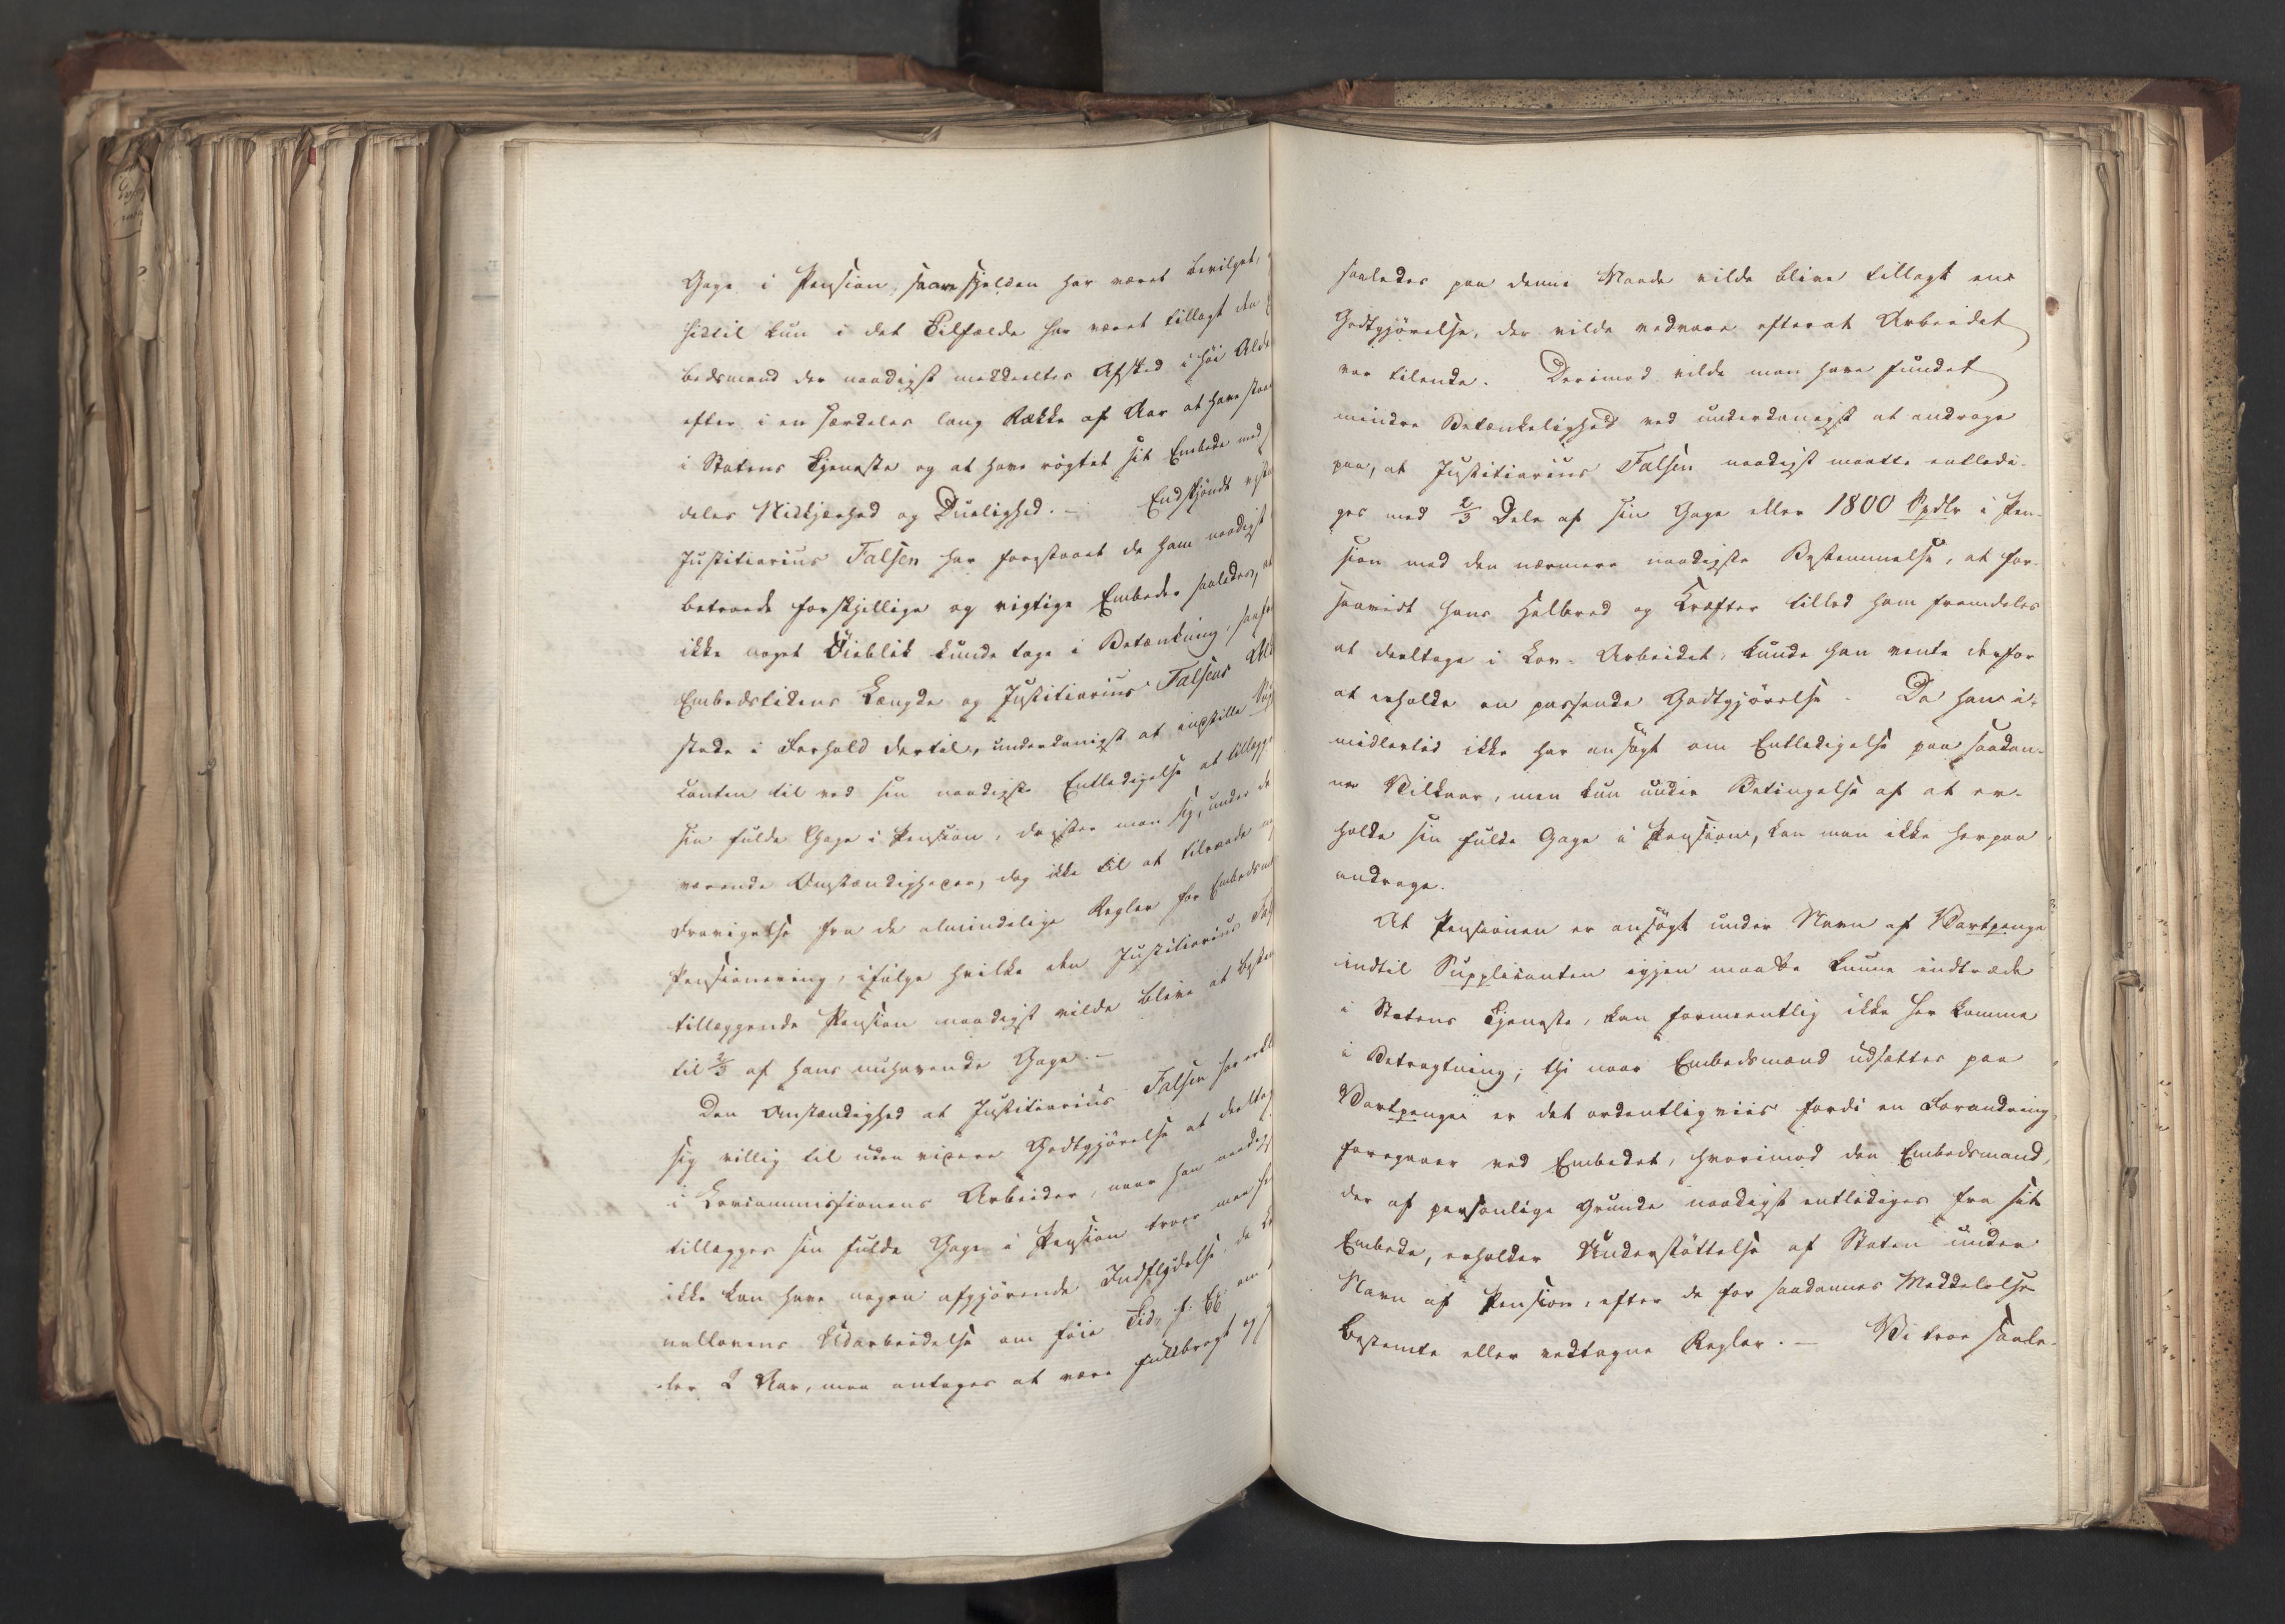 Gage i Pension saare sjelden har været bevilget,
hidtil kun i det Tilfælde har været tillagt den
bedsmand der naadigst meddeeltes Afsked i høi Alde
efter i en særdeles lang Række af Aar at have staaet
i Statens Tjeneste og at have røgtet sit Embede med
deles Nidkjærhed og Duelighed. – Endskjøndt
Justitiarius Falsen har forestaaet de ham naadigst
betroede forskjellige og vigtige Embeder saaledes, at
ikke noget Øieblik kunde tage i Betænkning,
Embedstidens Længde og Justitiarius Falsens
stede i Forhold dertil, underdanigst at indstille
canten til ved sin naadigste Entledigelse at tillægges
sin fulde Gage i Pension, drister man sig, under de
værende Omstændigheder, dog ikke til at tilraade
Fravigelse fra de almindelige Regler for Embedsmænds
Pensionering, ifølge hvilke den Justitiarius
tillæggende Pension naadigst vilde blive at
til 2/3 af hans nuhavende Gage. –
Den Omstændighed at Justitiarius Falsen har
sig villig til uden videre Godtgjørelse at deeltage
i Lovcommissionens Arbeider, naar han naadigst
tillægges sin fulde Gage i Pension troer man
ikke kan have nogen afgjørende Indflydelse, da
nallovens Udarbeidelse om føie Tid, f. Ex. om
eller 2 Aar, maa antages at være fuldbragt og
saaledes paa denne Maade vilde blive tillagt en
Godtgjørelse, der vilde vedvare efterat Arbeidet
var tilende. Derimod vilde man have fundet
mindre Betænkelighed ved underdanigst at andrage
paa, at Justitiarius Falsen naadigst maatte entledi-
ges med 2/3 Dele af sin Gage eller 1800 Spdlr i Pen-
sion med den nærmere naadigste Bestemmelse, at for-
saavidt hans Helbred og Kræfter tillod ham fremdeles
at deeltage i Lov-Arbeidet, kunde han vente derfor
at erholde en passende Godtgjørelse. Da han i-
midlertid ikke har ansøgt om Entledigelse paa saadan-
ne Vilkaar, men kun under Betingelse af at er-
holde sin fulde Gage i Pension, kan man ikke herpaa
andrage.
At Pensionen er ansøgt under Navn af Vartpenge
indtil Supplicanten igjen maatte kunne indtræde
i Statens Tjeneste, kan formeentlig ikke her komme
i Betragtning; thi naar Embedsmand udsættes paa
Vartpenge er det ordentligviis fordi en Forandring
foregaaer ved Embedet, hvorimod den Embedsmand,
der af personlige Grunde naadigst entlediges fra sit
Embede, erholder Understøttelse af Staten under
Navn af Pension, efter de for saadannes Meddelelse
bestemte eller vedtagne Regler. – Vi troe saale-